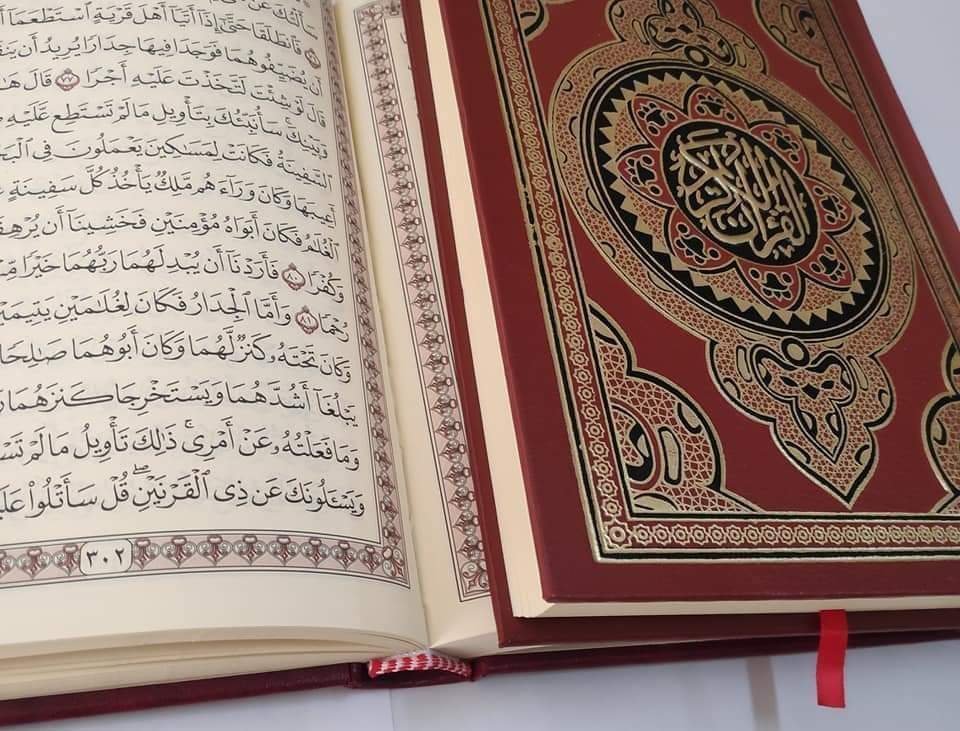 سَأَلْتُكَ عَن
فَٱنطَلَقَا حَتَّىٰٓ إِذَآ أَتَيَآ أَهْلَ قَرْيَةٍ ٱسْتَطْعَمَآ
أَن يُضَيِّفُوهُمَا فَوَجَدَا فِيهَا جِدَارًا يُرِيدُ أَن
قَالَ لَوْ شِئْتَ لَتَّخَذْتَ عَلَيْهِ أَجْرًا ٧٧ قَالَ
وَبَيْنِكَۚ سَأُنَبِّئُكَ بِتَأْوِيلِ مَا لَمْ تَسْتَطِع عَّلَيْهِ
ٱلسَّفِينَةُ فَكَانَتْ لِمَسَٰكِينَ يَعْمَلُونَ فِى
أَعِيبَهَا وَكَانَ وَرَآءَهُم مَّلِكٌ يَأْخُذُ كُلَّ سَفِينَةٍ
ٱلْغُلَٰمُ فَكَانَ أَبَوَاهُ مُؤْمِنَيْنِ فَخَشِينَآ أَن
وَكُفْرًا ٨٠ فَأَرَدْنَآ أَن يُبْدِلَهُمَا رَبُّهُمَا خَيْرًا
رُحْمًا ٨١ وَأَمَّا ٱلْجِدَارُ فَكَانَ لِغُلَٰمَيْنِ
وَكَانَ تَحْتَهُۥ كَنزٌ لَّهُمَا وَكَانَ أَبُوهُمَا صَٰلِحًا
يَبْلُغَآ أَشُدَّهُمَا وَيَسْتَخْرِجَا كَنزَهُمَا
وَمَا فَعَلْتُهُۥ عَنْ أَمْرِىۚ ذَٰلِكَ تَأْوِيلُ مَا لَمْ
وَيَسْـَٔلُونَكَ عَن ذِى ٱلْقَرْنَيْنِۖ قُلْ سَأَتْلُوا۟
٣٠٢
القرآن الكريم